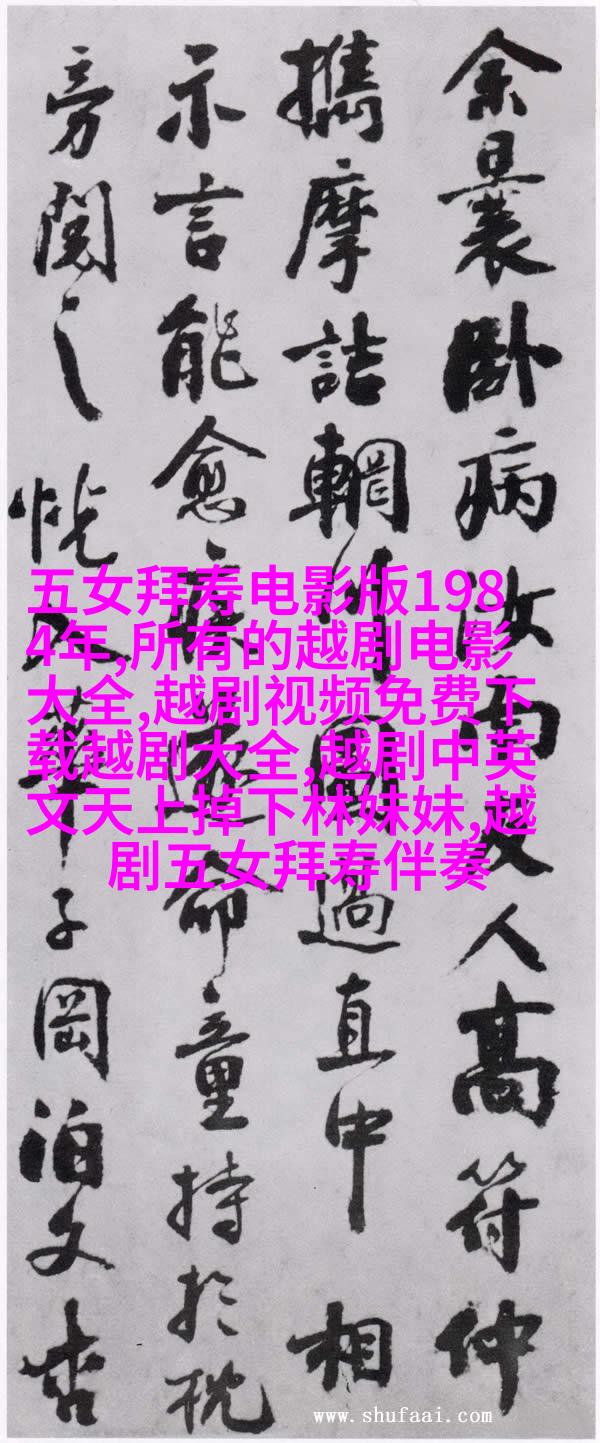 余曩卧病汝南友人高符仲
攜摩詰輞川圖過直中相
示言能愈疾遂命童持於枕
旁閱之恍入華子岡泊文杏
五女拜寿电影版198
4年,所有的越剧电影
大全,越剧视频免费下
载越剧大全,越剧中英
文天上掉下林妹妹,越
剧五女拜寿伴奏
www.shufaai.com